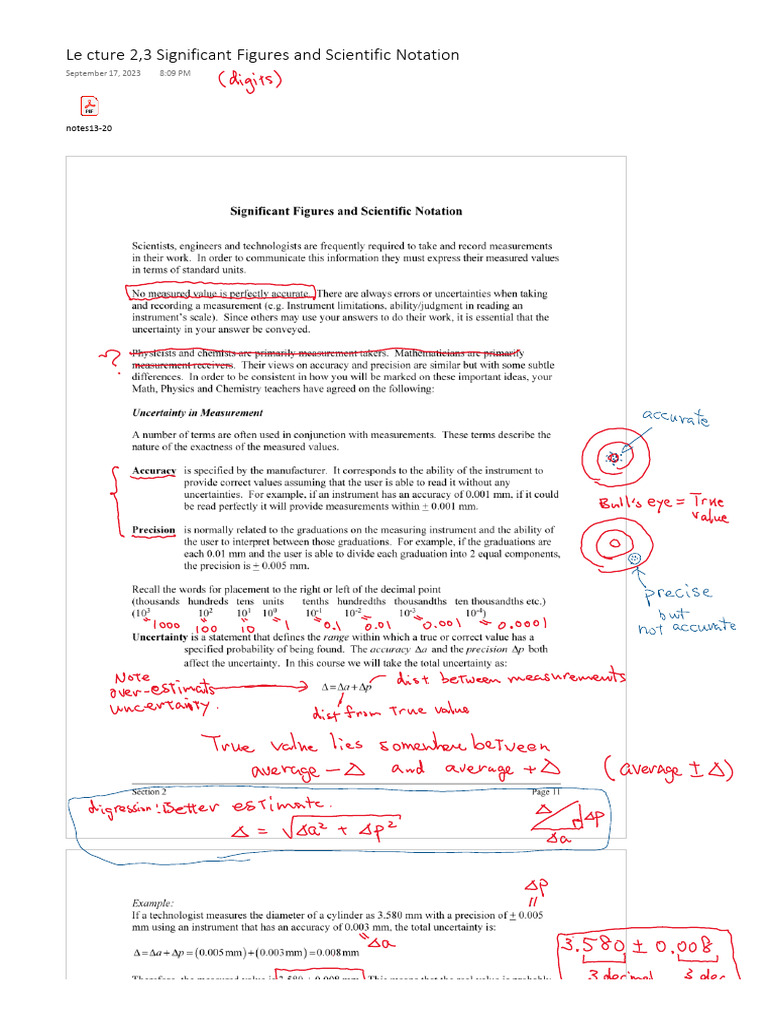 Le cture 2,3 Significant Figures and Scientific Notation
September 17, 2023 8:09 PM
(digits)
PDF
notes13-20
Significant Figures and Scientific Notation
Scientists, engineers and technologists are frequently required to take and record measurements
in their work. In order to communicate this information they must express their measured values
in terms of standard units.
No measured value is perfectly accurate. There are always errors or uncertainties when taking
and recording a measurement (e.g. Instrument limitations, ability/judgment in reading an
instrument's scale). Since others may use your answers to do their work, it is essential that the
uncertainty in your answer be conveyed.
?
Physicists and chemists are primarily measurement takers. Mathematicians are primarily
measurement receivers. Their views on accuracy and precision are similar but with some subtle
differences. In order to be consistent in how you will be marked on these important ideas, your
Math, Physics and Chemistry teachers have agreed on the following:
Uncertainty in Measurement
A number of terms are often used in conjunction with measurements. These terms describe the
nature of the exactness of the measured values.
accurate
Accuracy is specified by the manufacturer. It corresponds to the ability of the instrument to
provide correct values assuming that the user is able to read it without any
uncertainties. For example, if an instrument has an accuracy of 0.001 mm, if it could
be read perfectly it will provide measurements within ± 0.001 mm.
Bull's eye = True
value
Precision is normally related to the graduations on the measuring instrument and the ability of
the user to interpret between those graduations. For example, if the graduations are
each 0.01 mm and the user is able to divide each graduation into 2 equal components,
the precision is ± 0.005 mm.
precise
but
not accurate
Recall the words for placement to the right or left of the decimal point
(thousands hundreds tens units tenths hundredths thousandths ten thousandths etc.)
(10³ 10² 10¹ 10⁰ 10⁻¹ 10⁻² 10⁻³ 10⁻⁴)
= 1000 = 100 = 10 = 1 = 0.1 = 0.01 = 0.001 = 0.0001
Uncertainty is a statement that defines the range within which a true or correct value has a
specified probability of being found. The accuracy Δa and the precision Δp both
affect the uncertainty. In this course we will take the total uncertainty as:
Note
over-estimats
uncertainty.
Δ = Δa + Δp
dist between measurements
dist from True value
True value lies somewhere between
average - Δ and average + Δ (average ± Δ)
Section 2 Page 11
digression: Better estimate.
Δ = √Δa² + Δp²
Δ Δp
Δa
Δp
=
Example:
If a technologist measures the diameter of a cylinder as 3.580 mm with a precision of ± 0.005
mm using an instrument that has an accuracy of 0.003 mm, the total uncertainty is:
= Δa
Δ = Δa + Δp = (0.005 mm) + (0.003 mm) = 0.008 mm
3.580 ± 0.008
3 decimal 3 dec
Therefore, the measured value is 3.580 ± 0.008 mm. This means that the real value is probably